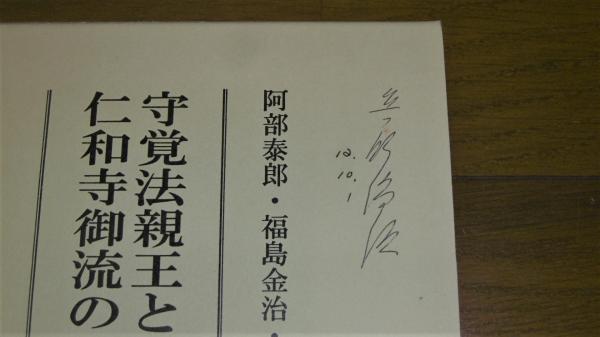 10.
10.
1
阿部泰郎・福島金治・
守覚法親王と
仁和寺御流の